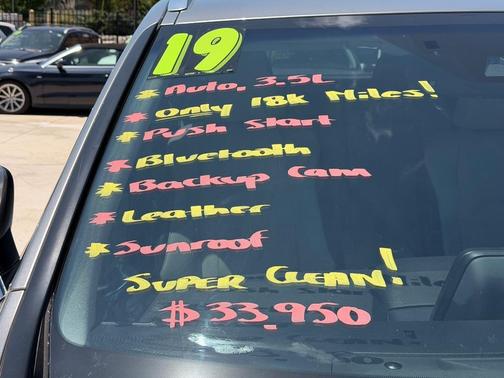 19
* Auto, 3.5L
* Only 18k Miles!
* Push Start
* Bluetooth
* Backup Cam
* Leather
* Sunroof
Super Clean!
$33,950